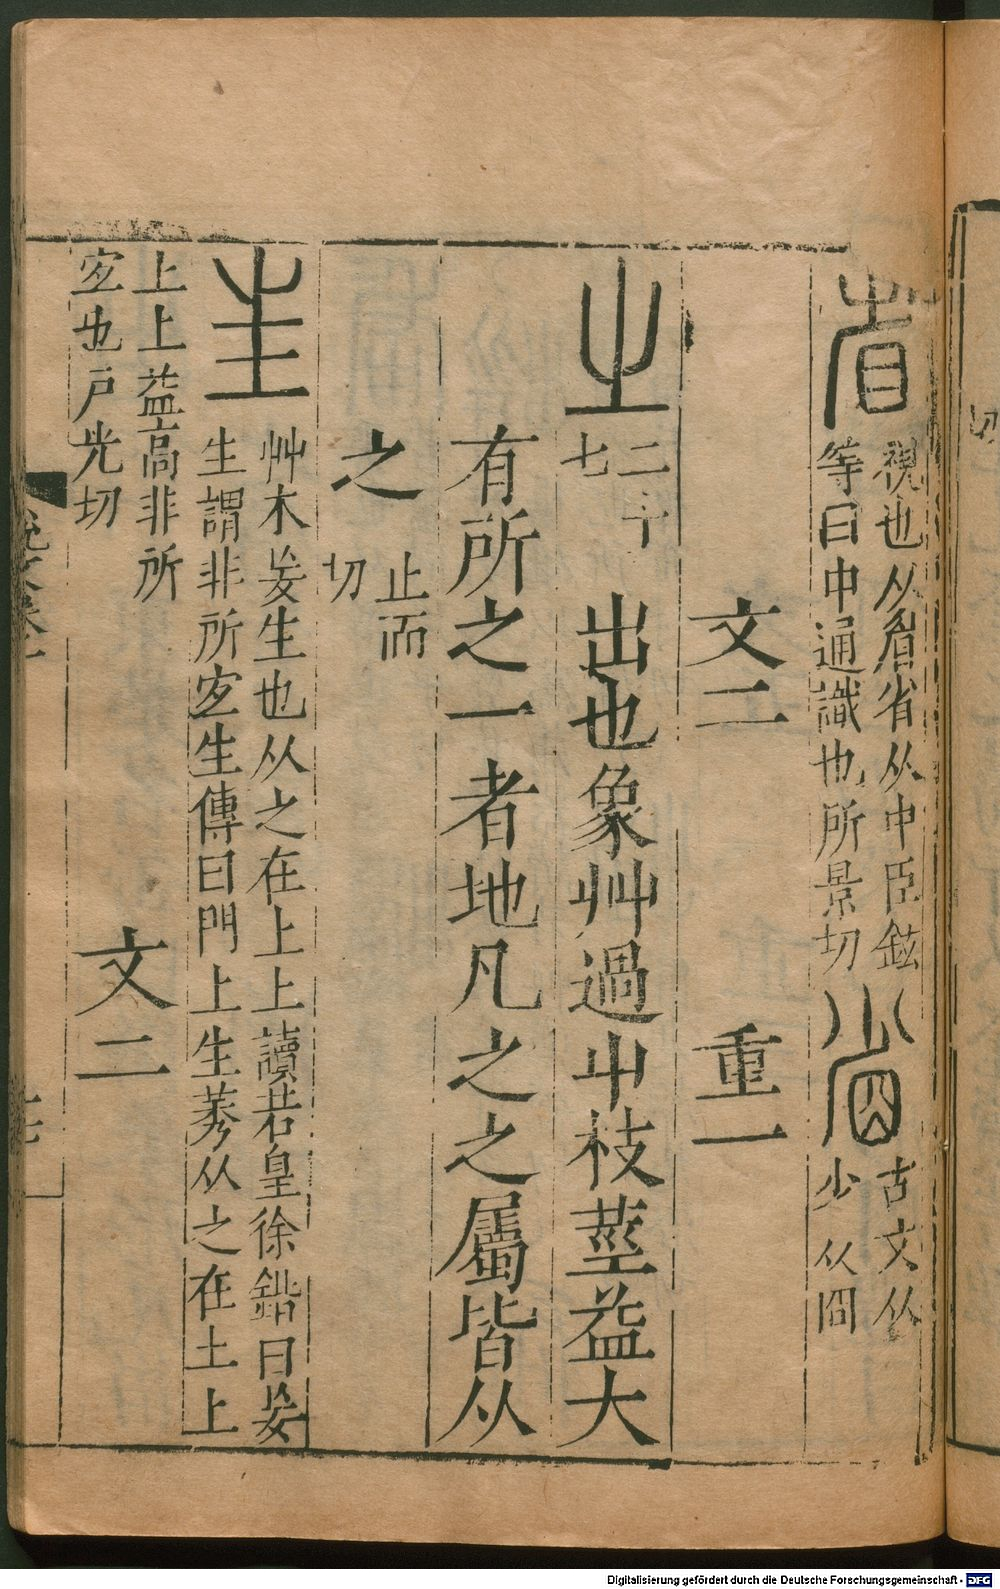 省
視也从眉省从屮臣鉉
等曰屮通識也所景切
𡮐
古文从
少从囧
文二 重一
㞢
二十
七
出也象艸過屮枝莖益大
有所之一者地凡之之屬皆从
之
止而
切
㞷
艸木妄生也从之在土上讀若皇徐鍇曰妄
生謂非所宜生傳曰門上生莠从之在土上
上上益高非所
宜也戶光切
文二
說文卷
Digitalisierung gefördert durch die Deutsche Forschungsgemeinschaft - DFG